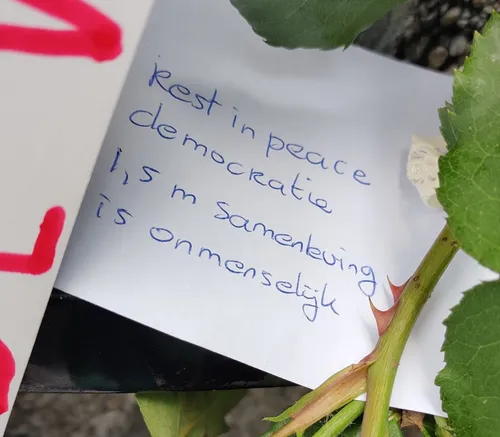 Rest in peace
democratie
1,5 m samenleving
is onmenselijk